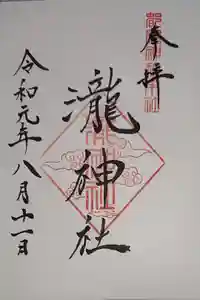 奉拝
瀧神社
令和元年八月十一日